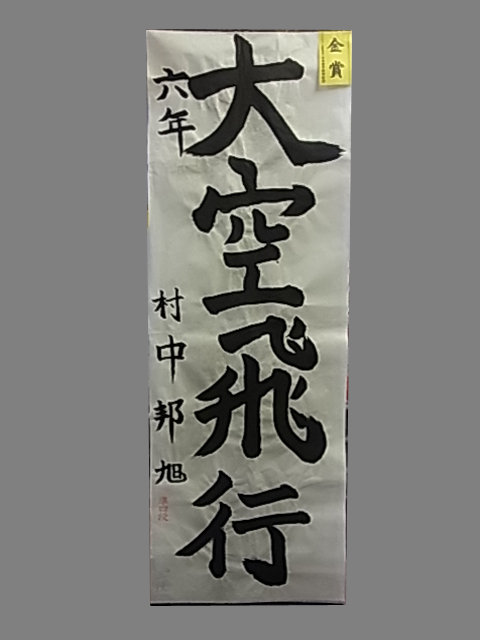 金賞
大空飛行
六年
村中邦旭
準四段